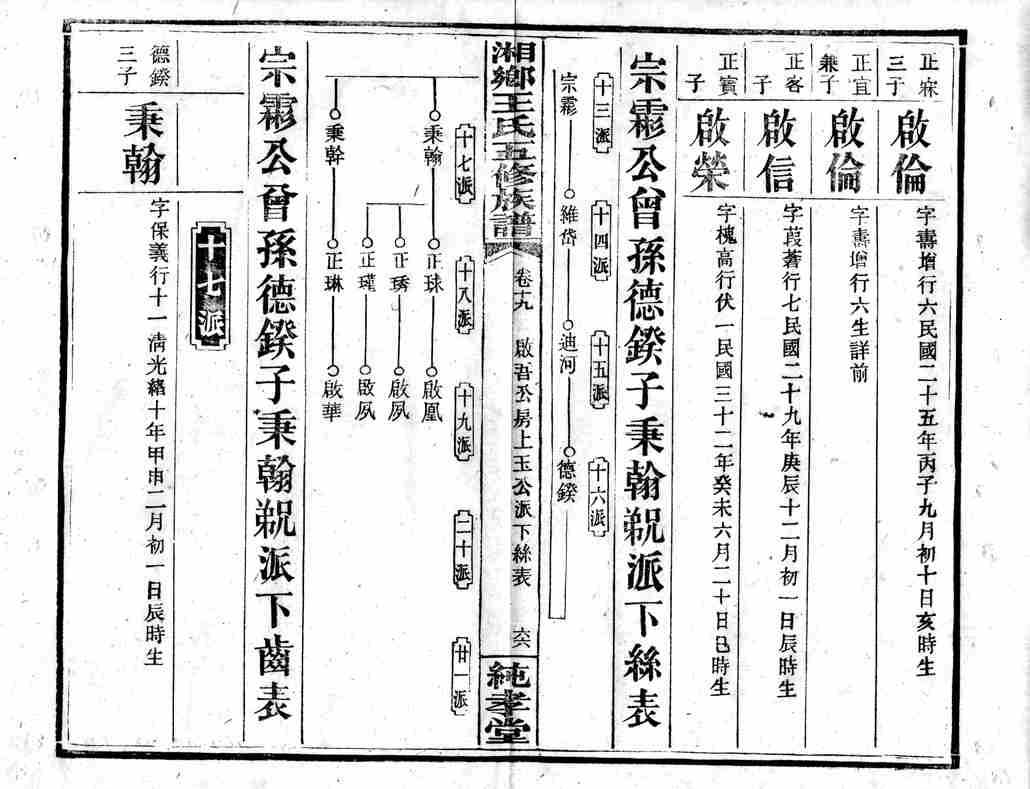 正寐
三子
啟倫
字壽增行六民國二十五年丙子九月初十日亥時生
正宜
兼子
啟倫
字壽增行六生詳前
正客
子
啟信
字葭蒼行七民國二十九年庚辰十二月初一日辰時生
正賓
子
啟榮
字槐高行伏一民國三十二年癸未六月二十日巳時生
宗霦公曾孫德鍨子秉翰派下絲表
十三派
十四派
十五派
十六派
宗霦
維岱
迪河
德鍨
湘鄉王氏五修族譜
卷十九
啟吾公房上玉公派下絲表
六
純孝堂
十七派
十八派
十九派
二十派
廿一派
秉翰
正球
啟凰
正琇
啟夙
正瑾
啟夙
秉幹
正琳
啟華
宗霦公曾孫德鍨子秉翰派下齒表
十七派
德鍨
三子
秉翰
字保義行十一清光緒十年甲申二月初一日辰時生